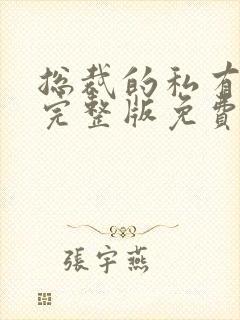 总裁的私有
完整版免費
張宇燕